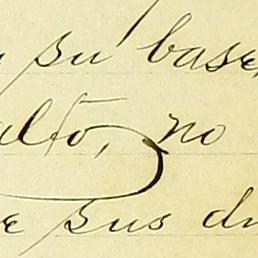 su base,
alto, no
e sus du